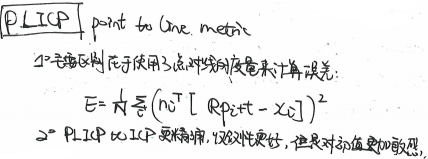 PLICP point to line metric
1° 主要区别在于使用了点对线的度量来计算误差:
E = 1/N Σi (niᵀ [ Rpi+t - xi ])²
2° PLICP 比 ICP 更精确, 收敛性更好, 但是对初值更加敏感,